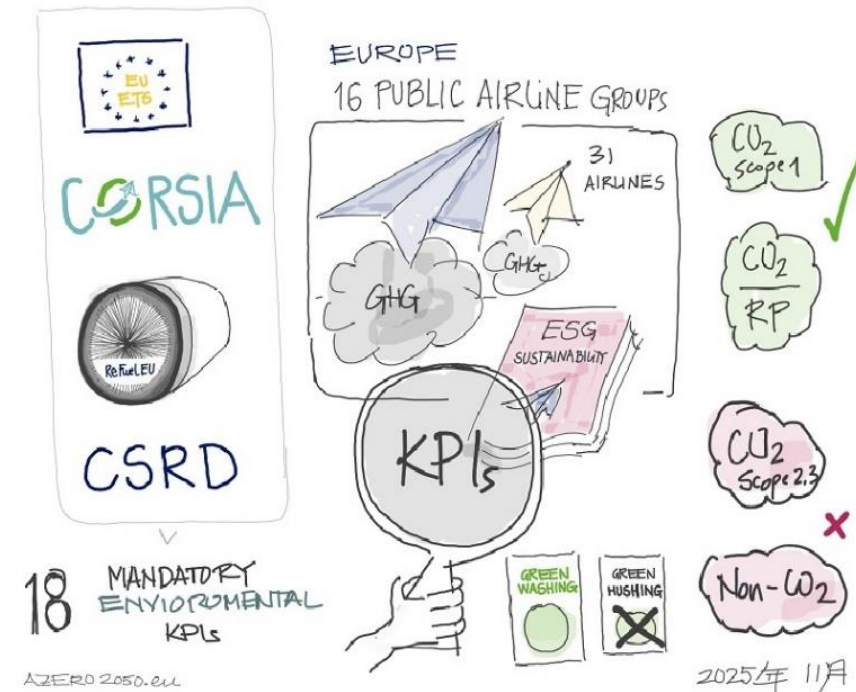 EU
ETS
CORSIA
ReFuelEU
CSRD
18 MANDATORY
ENVIOROMENTAL
KPIs
AZERO2050.eu
EUROPE
16 PUBLIC AIRLINE GROUPS
31
AIRLINES
GHG
GHG
ESG
SUSTAINABILITY
KPIs
GREEN
WASHING
GREEN
HUSHING
CO2
scope 1
CO2
RP
CO2
Scope 2,3
Non-CO2
2025年 11月